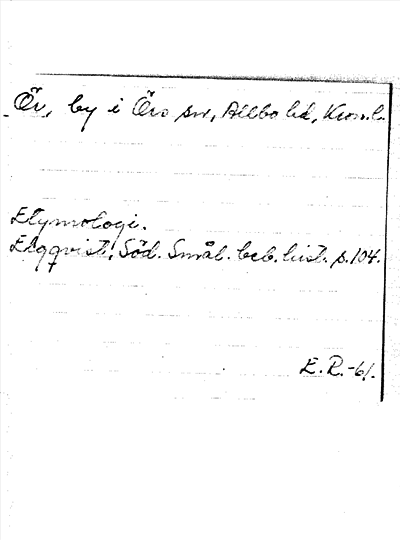 Ör, by i Örs sn, Allbo hd, Kron.l.
Etymologi.
Elgqvist, Söd. Smål. beb. hist. s. 104.
E. R. -61.